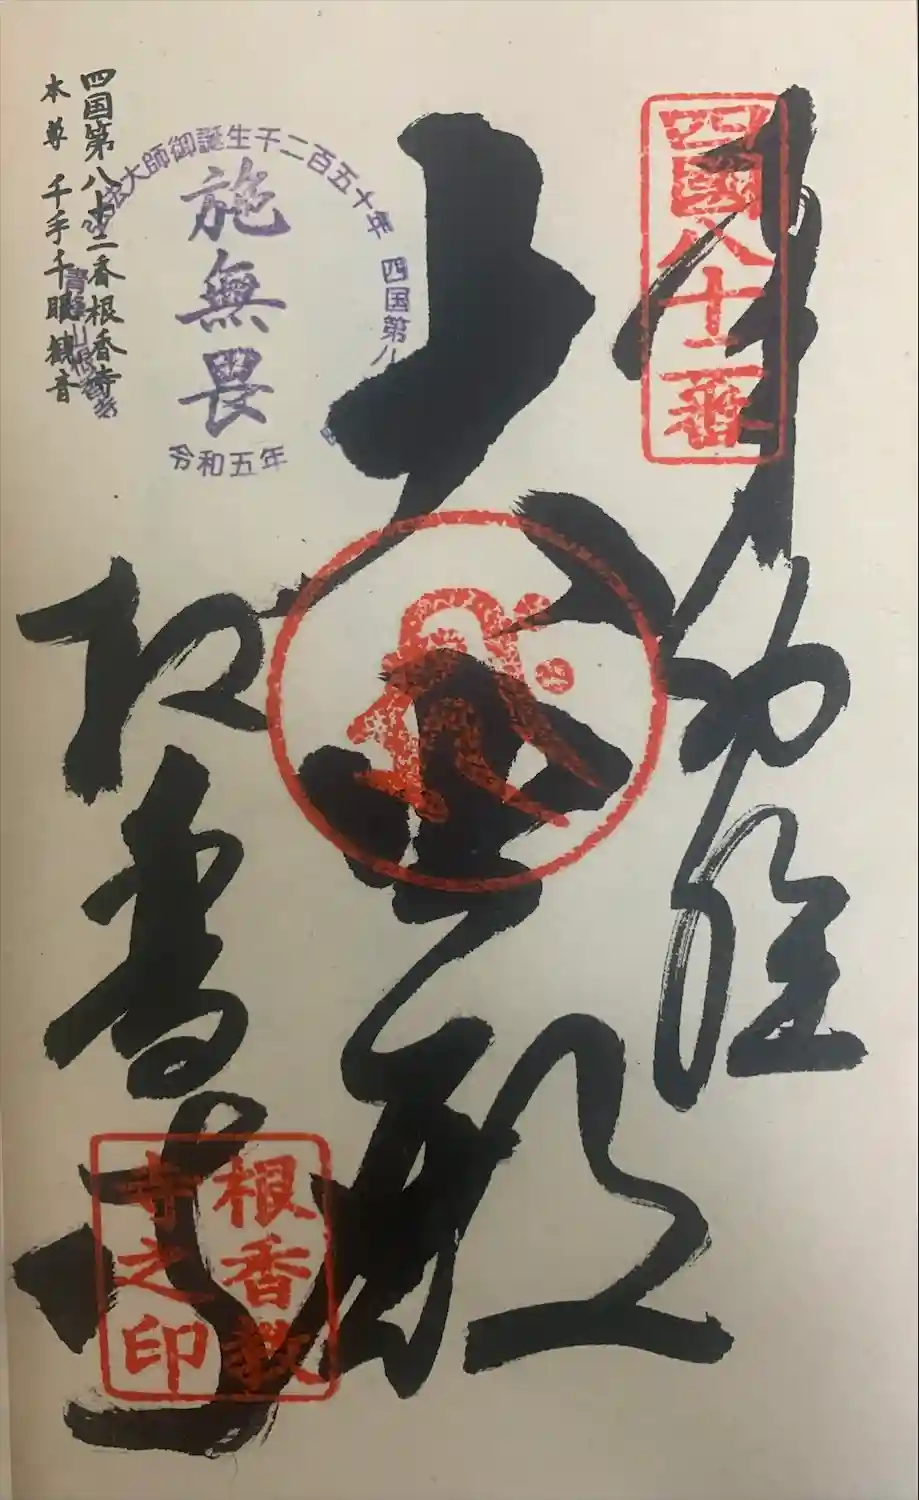 四國八十二番
奉納経
大悲殿
根香寺
根香教
寺之印
弘法大師御誕生千二百五十年 四国第八
施無畏
令和五年
青峰山根香寺
四国第八十二番根香寺
本尊 千手千眼観音